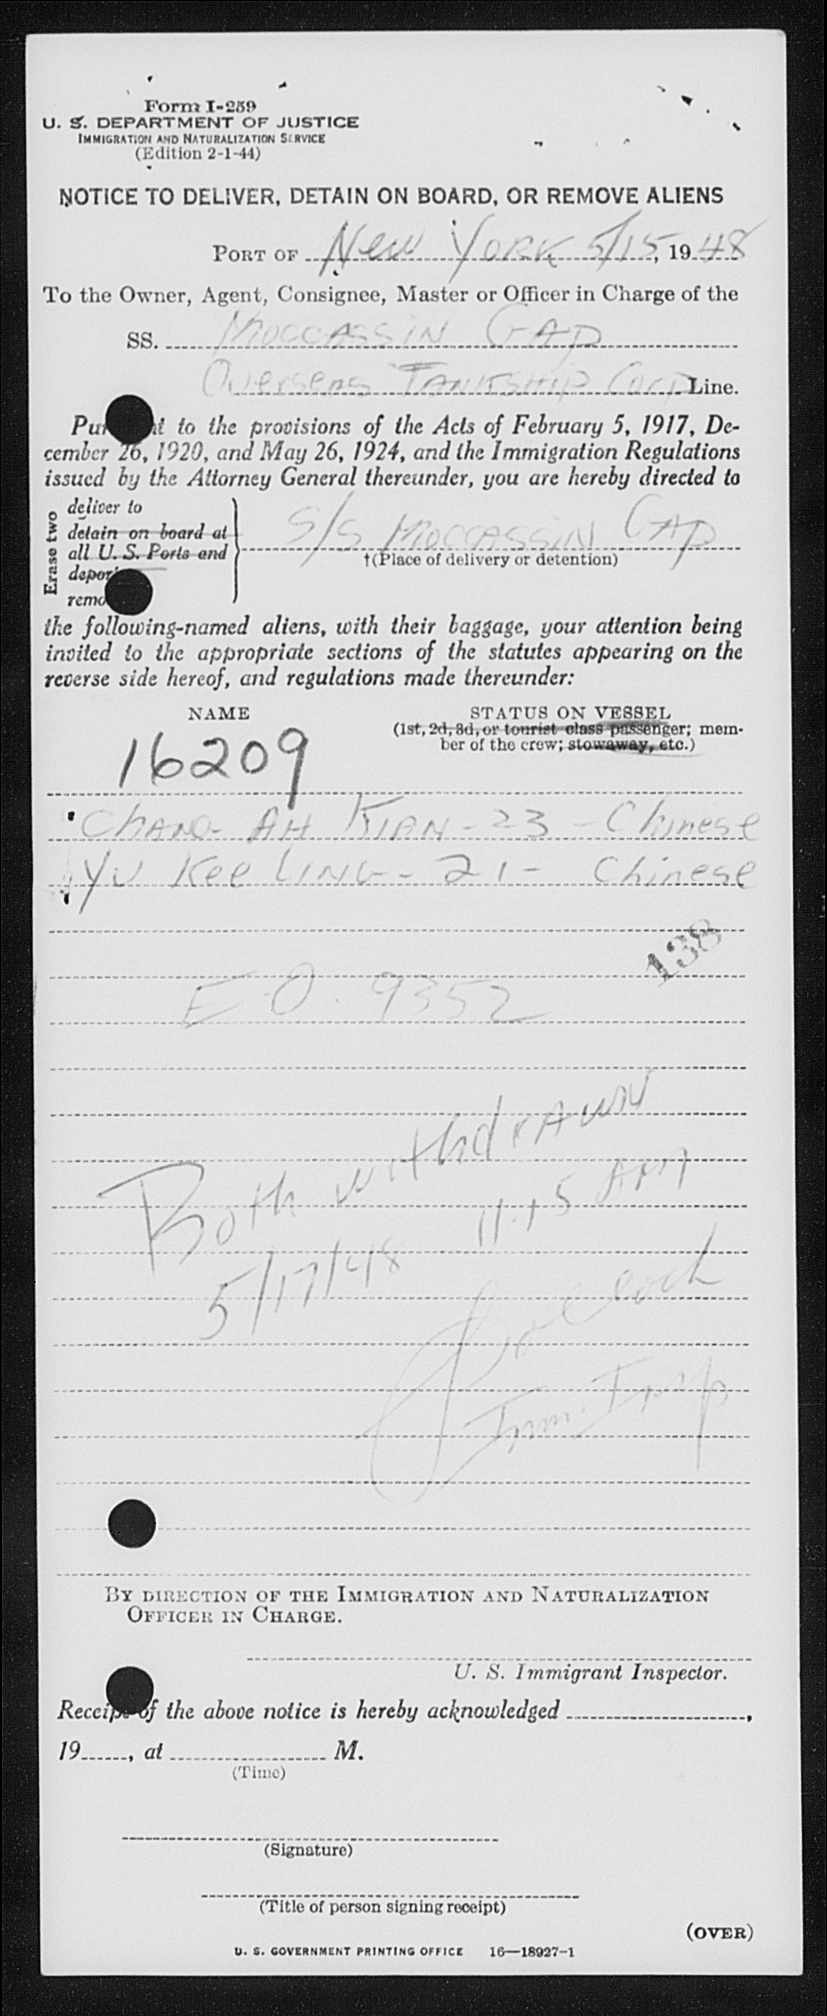 Form I-259
U. S. DEPARTMENT OF JUSTICE
IMMIGRATION AND NATURALIZATION SERVICE
(Edition 2-1-44)
NOTICE TO DELIVER, DETAIN ON BOARD, OR REMOVE ALIENS
PORT OF New York 5/15, 1948
To the Owner, Agent, Consignee, Master or Officer in Charge of the
SS. Moccassin Gap
Overseas Tankship Corp Line.
Pu t to the provisions of the Acts of February 5, 1917, De-
cember 26, 1920, and May 26, 1924, and the Immigration Regulations
issued by the Attorney General thereunder, you are hereby directed to
Erase two
deliver to
detain on board at
all U. S. Ports and
depor
remo
S/S Moccassin Gap
†(Place of delivery or detention)
the following-named aliens, with their baggage, your attention being
invited to the appropriate sections of the statutes appearing on the
reverse side hereof, and regulations made thereunder:
NAME STATUS ON VESSEL
(1st, 2d, 3d, or tourist class passenger; mem-
ber of the crew; stowaway, etc.)
16209
Chang Ah Kian - 23 - Chinese
Yu Kee Ling - 21 - Chinese
138
E.O. 9352
Both withdrawn
11.15 AM
5/17/48
Imm. Insp
BY DIRECTION OF THE IMMIGRATION AND NATURALIZATION
OFFICER IN CHARGE.
U. S. Immigrant Inspector.
Receipt of the above notice is hereby acknowledged ,
19 , at M.
(Time)
(Signature)
(Title of person signing receipt)
(OVER)
U. S. GOVERNMENT PRINTING OFFICE 16—18927-1